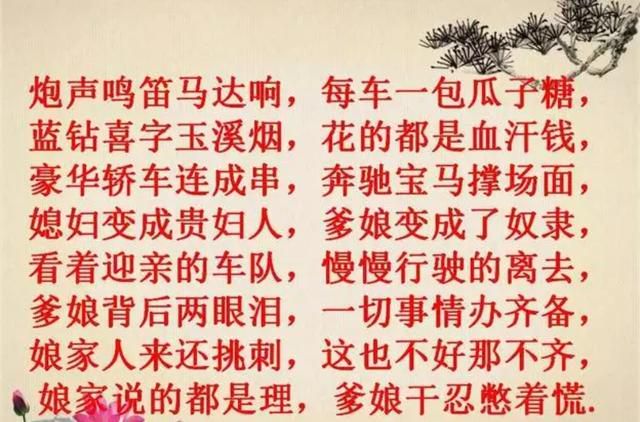 炮声鸣笛马达响，每车一包瓜子糖，
蓝钻喜字玉溪烟，花的都是血汗钱，
豪华轿车连成串，奔驰宝马撑场面，
媳妇变成贵妇人，爹娘变成了奴隶，
看着迎亲的车队，慢慢行驶的离去，
爹娘背后两眼泪，一切事情办齐备，
娘家人来还挑刺，这也不好那不齐，
娘家说的都是理，爹娘干忍憋着慌.